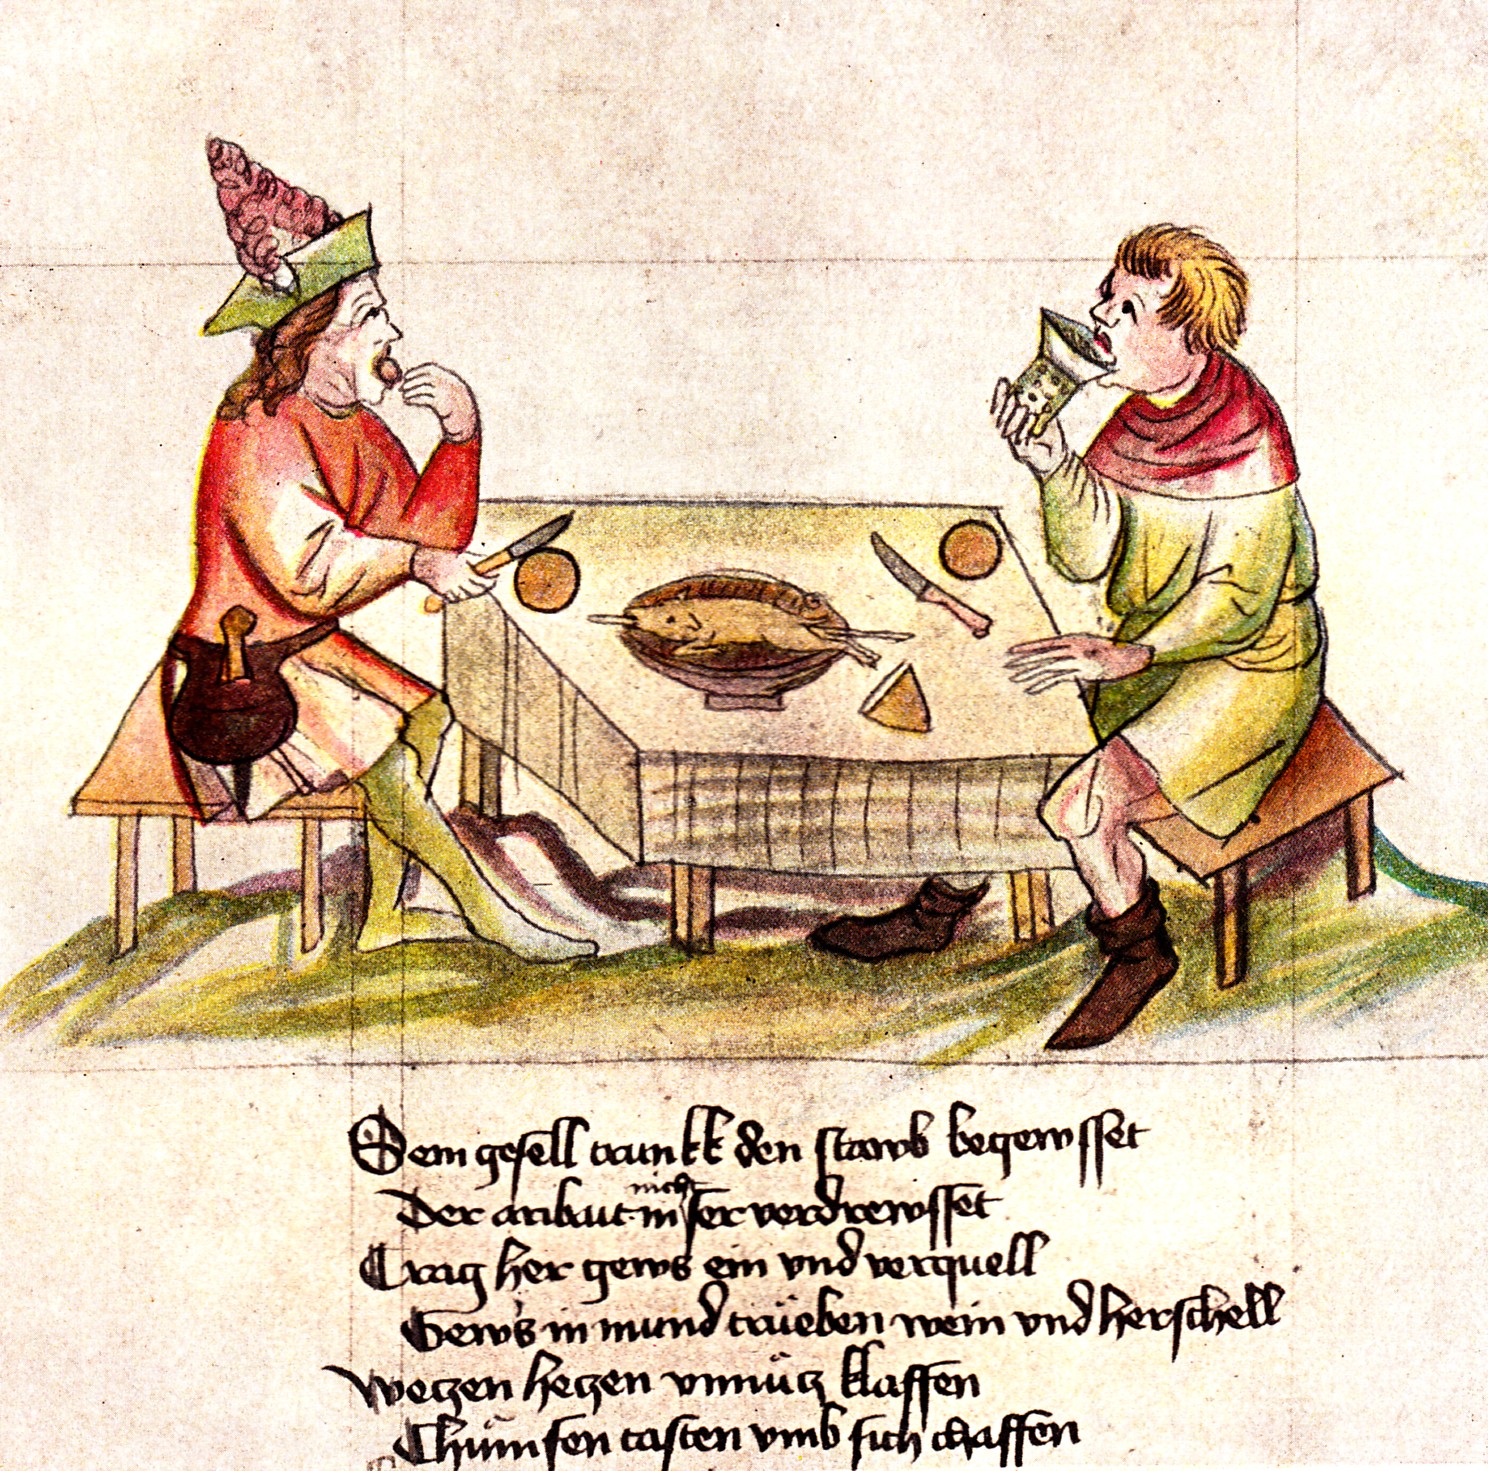 Sein gesell trunkk den stawb begewsset
Der aribait in nicht ser verdrewsset
Trag her gews ein vnd verquell
Gews in mund trüeben wein vnd herschell
Weczen heczen vnnücz klaffen
Chümsen tasten vmb sich chaffen